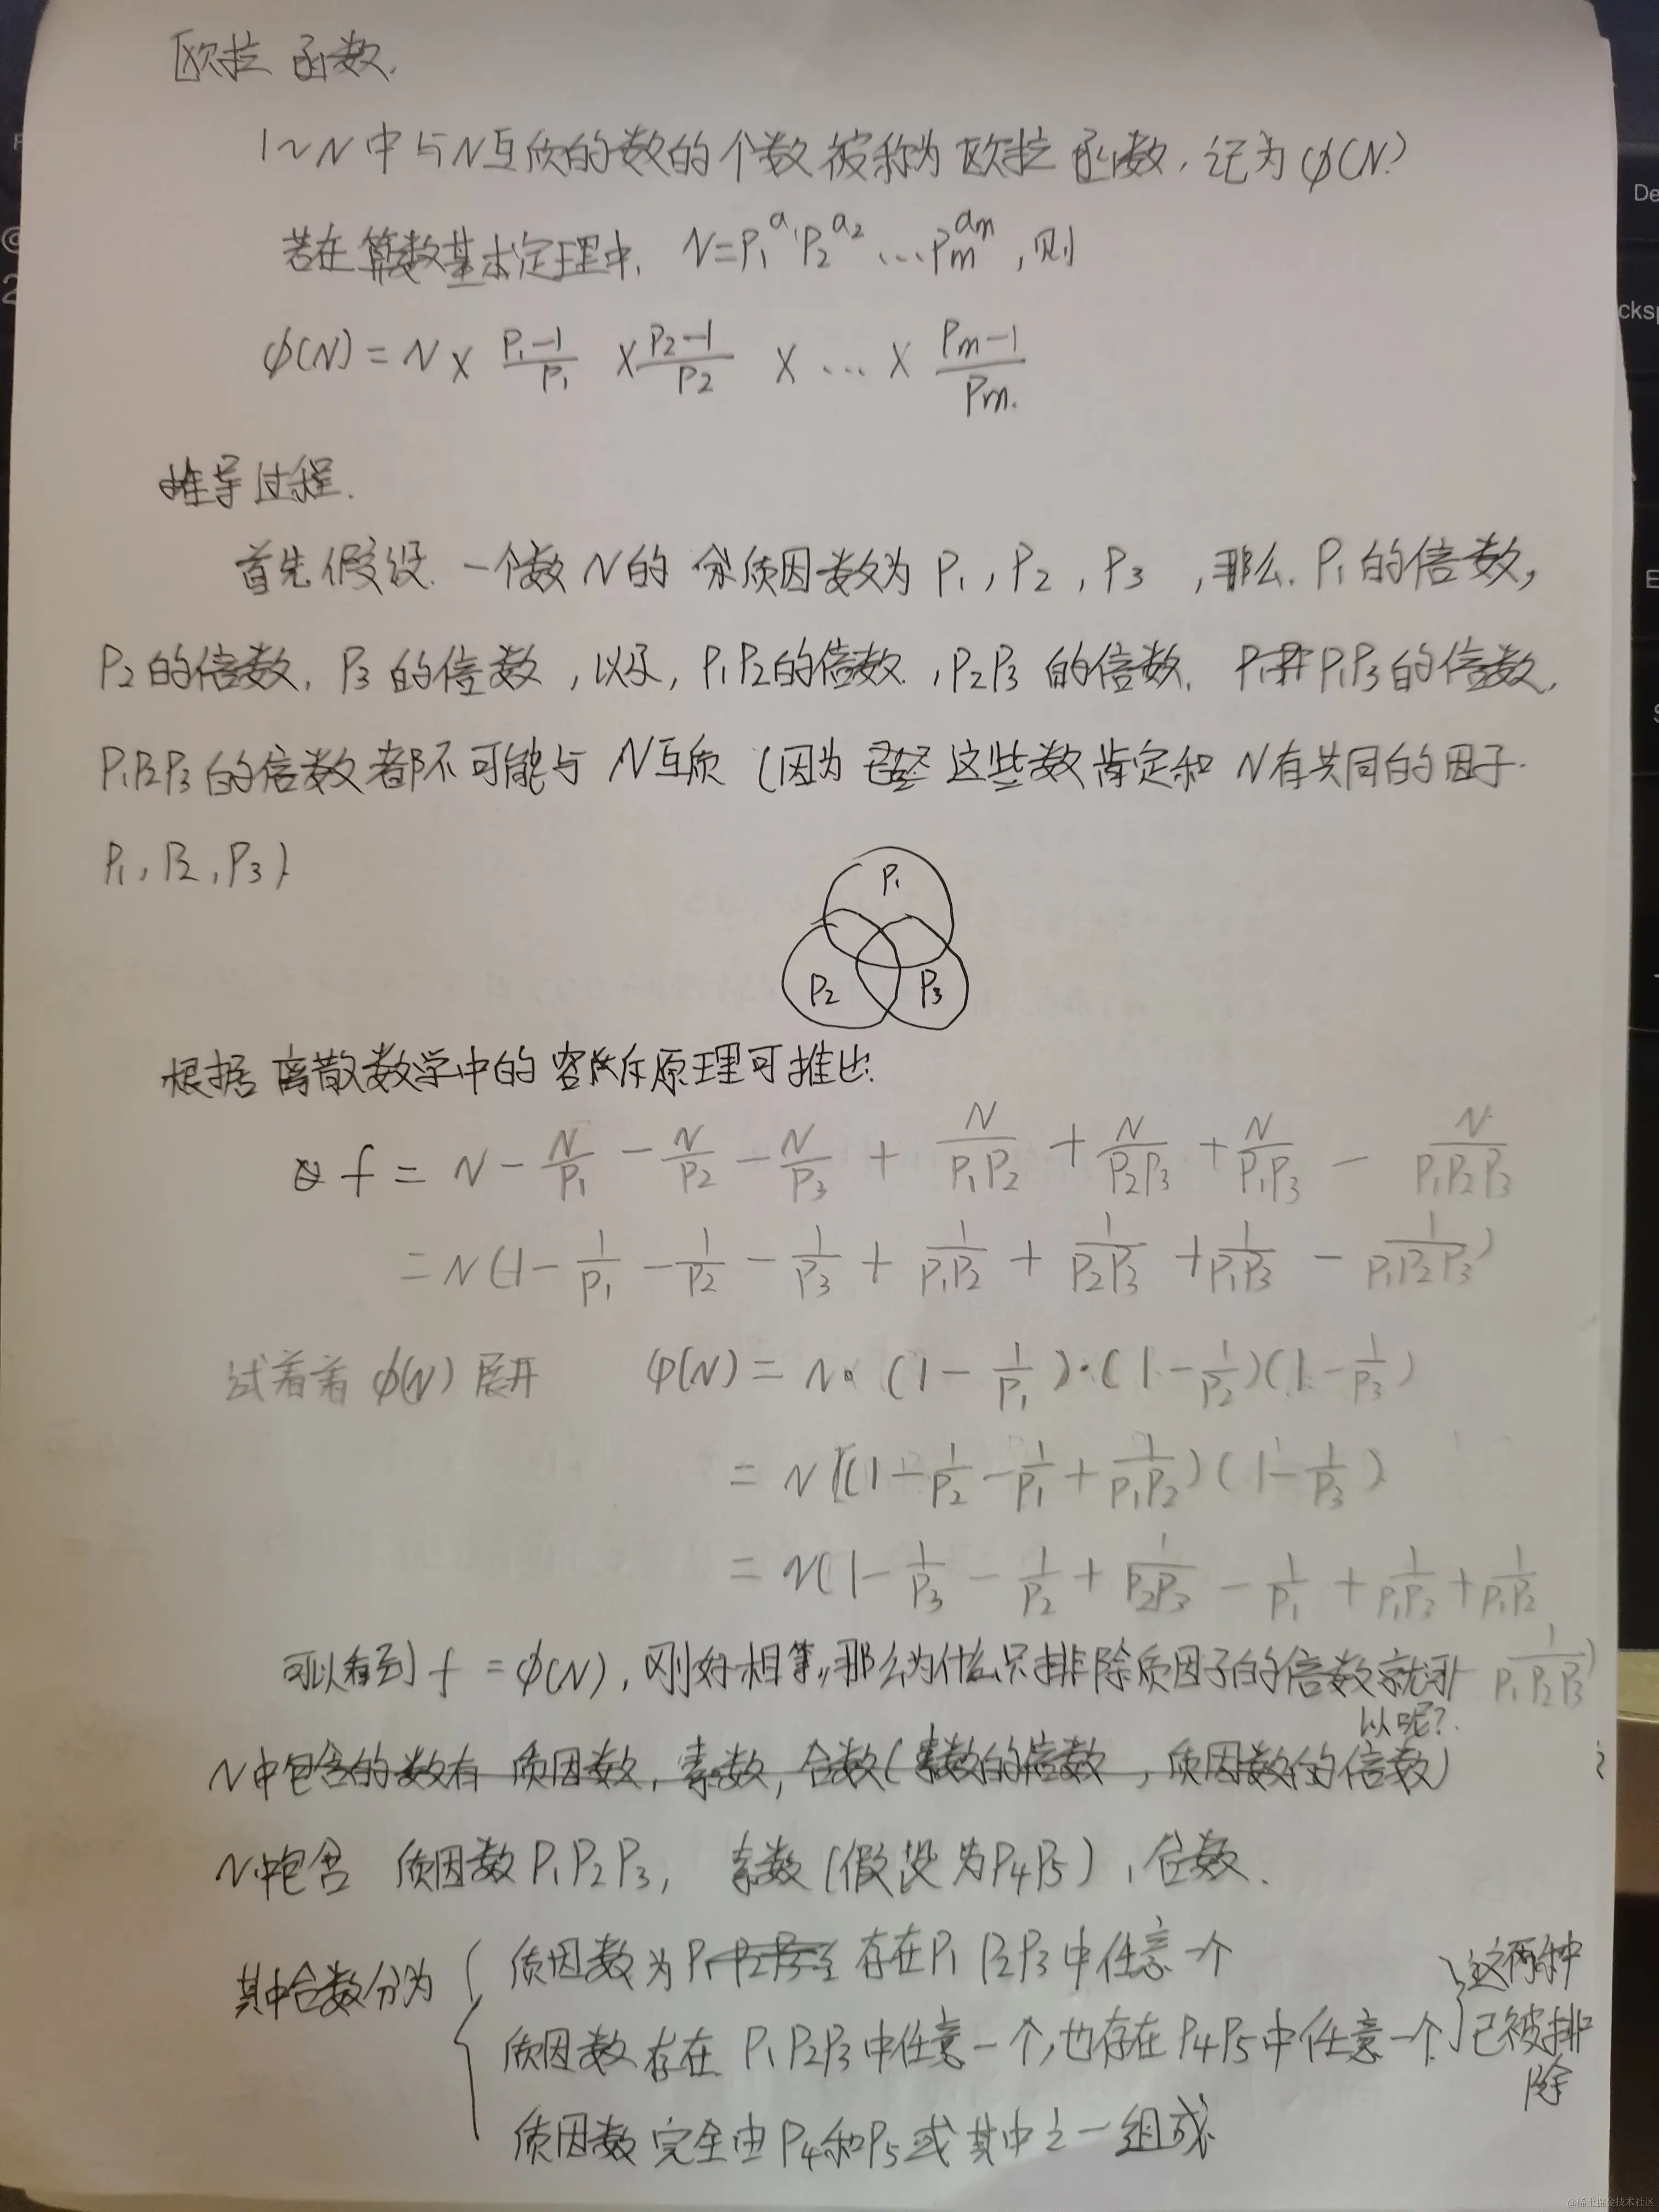 欧拉函数.
1~N中与N互质的数的个数被称为欧拉函数,记为φ(N)
若在算数基本定理中, N=P₁^a₁ P₂^a₂ …Pm^am ,则
φ(N) = N × (P₁-1)/P₁ × (P₂-1)/P₂ × … × (Pm-1)/Pm.
推导过程.
首先假设一个数N的质因数为 P₁, P₂, P₃ ,那么. P₁的倍数,
P₂的倍数, P₃的倍数,以及, P₁P₂的倍数, P₂P₃的倍数, P₁P₃的倍数,
P₁P₂P₃的倍数都不可能与N互质(因为这些数肯定和N有共同的因子.
P₁, P₂, P₃)
P₁
P₂ P₃
根据离散数学中的容斥原理可推出:
f = N - N/P₁ - N/P₂ - N/P₃ + N/(P₁P₂) + N/(P₂P₃) + N/(P₁P₃) - N/(P₁P₂P₃)
= N(1 - 1/P₁ - 1/P₂ - 1/P₃ + 1/(P₁P₂) + 1/(P₂P₃) + 1/(P₁P₃) - 1/(P₁P₂P₃))
试着着 φ(N) 展开 φ(N) = N·(1 - 1/P₁)·(1 - 1/P₂)(1 - 1/P₃)
= N((1 - 1/P₂ - 1/P₁ + 1/(P₁P₂))(1 - 1/P₃)
= N(1 - 1/P₃ - 1/P₂ + 1/(P₂P₃) - 1/P₁ + 1/(P₁P₃) + 1/(P₁P₂)
- 1/(P₁P₂P₃))
可以看到 f = φ(N),刚好相等,那么为什么只排除质因子的倍数就可
以呢?
N中包含的数有 质因数,素数,合数(素数的倍数,质因数的倍数)
N中包含 质因数P₁P₂P₃, 素数(假设为P₄P₅),合数.
其中合数分为
质因数为P₁P₂P₃ 存在P₁P₂P₃中任意一个
质因数存在P₁P₂P₃中任意一个,也存在P₄P₅中任意一个
这两种
已被排
除
质因数完全由P₄和P₅或其中之一组成
@稀土掘金技术社区
De
cksp
E